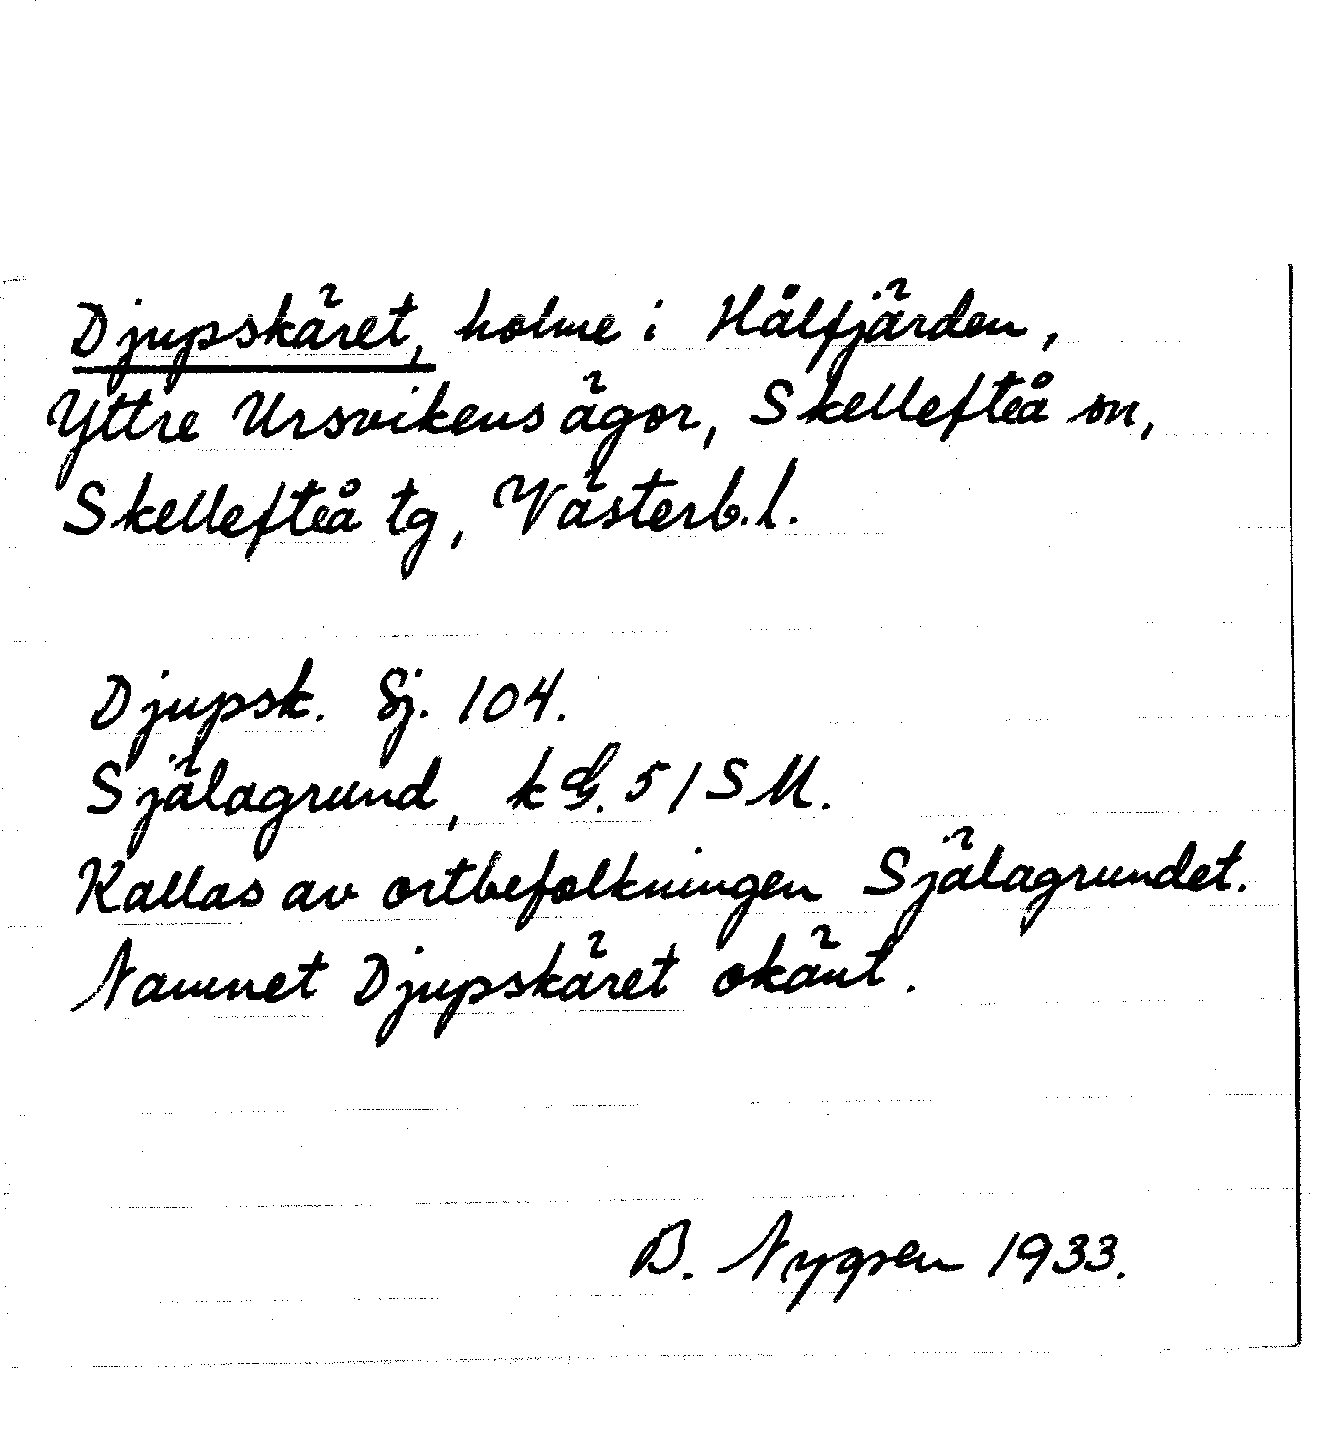 Djupskäret, holme i Hålfjärden,
Yttre Ursvikens ägor, Skellefteå sn,
Skellefteå tg, Västerb.l.
Djupsk. Sj. 104.
Själagrund, k G. 51 SM.
Kallas av ortbefolkningen Själagrundet.
Namnet Djupskäret okänt.
B. Nygren 1933.